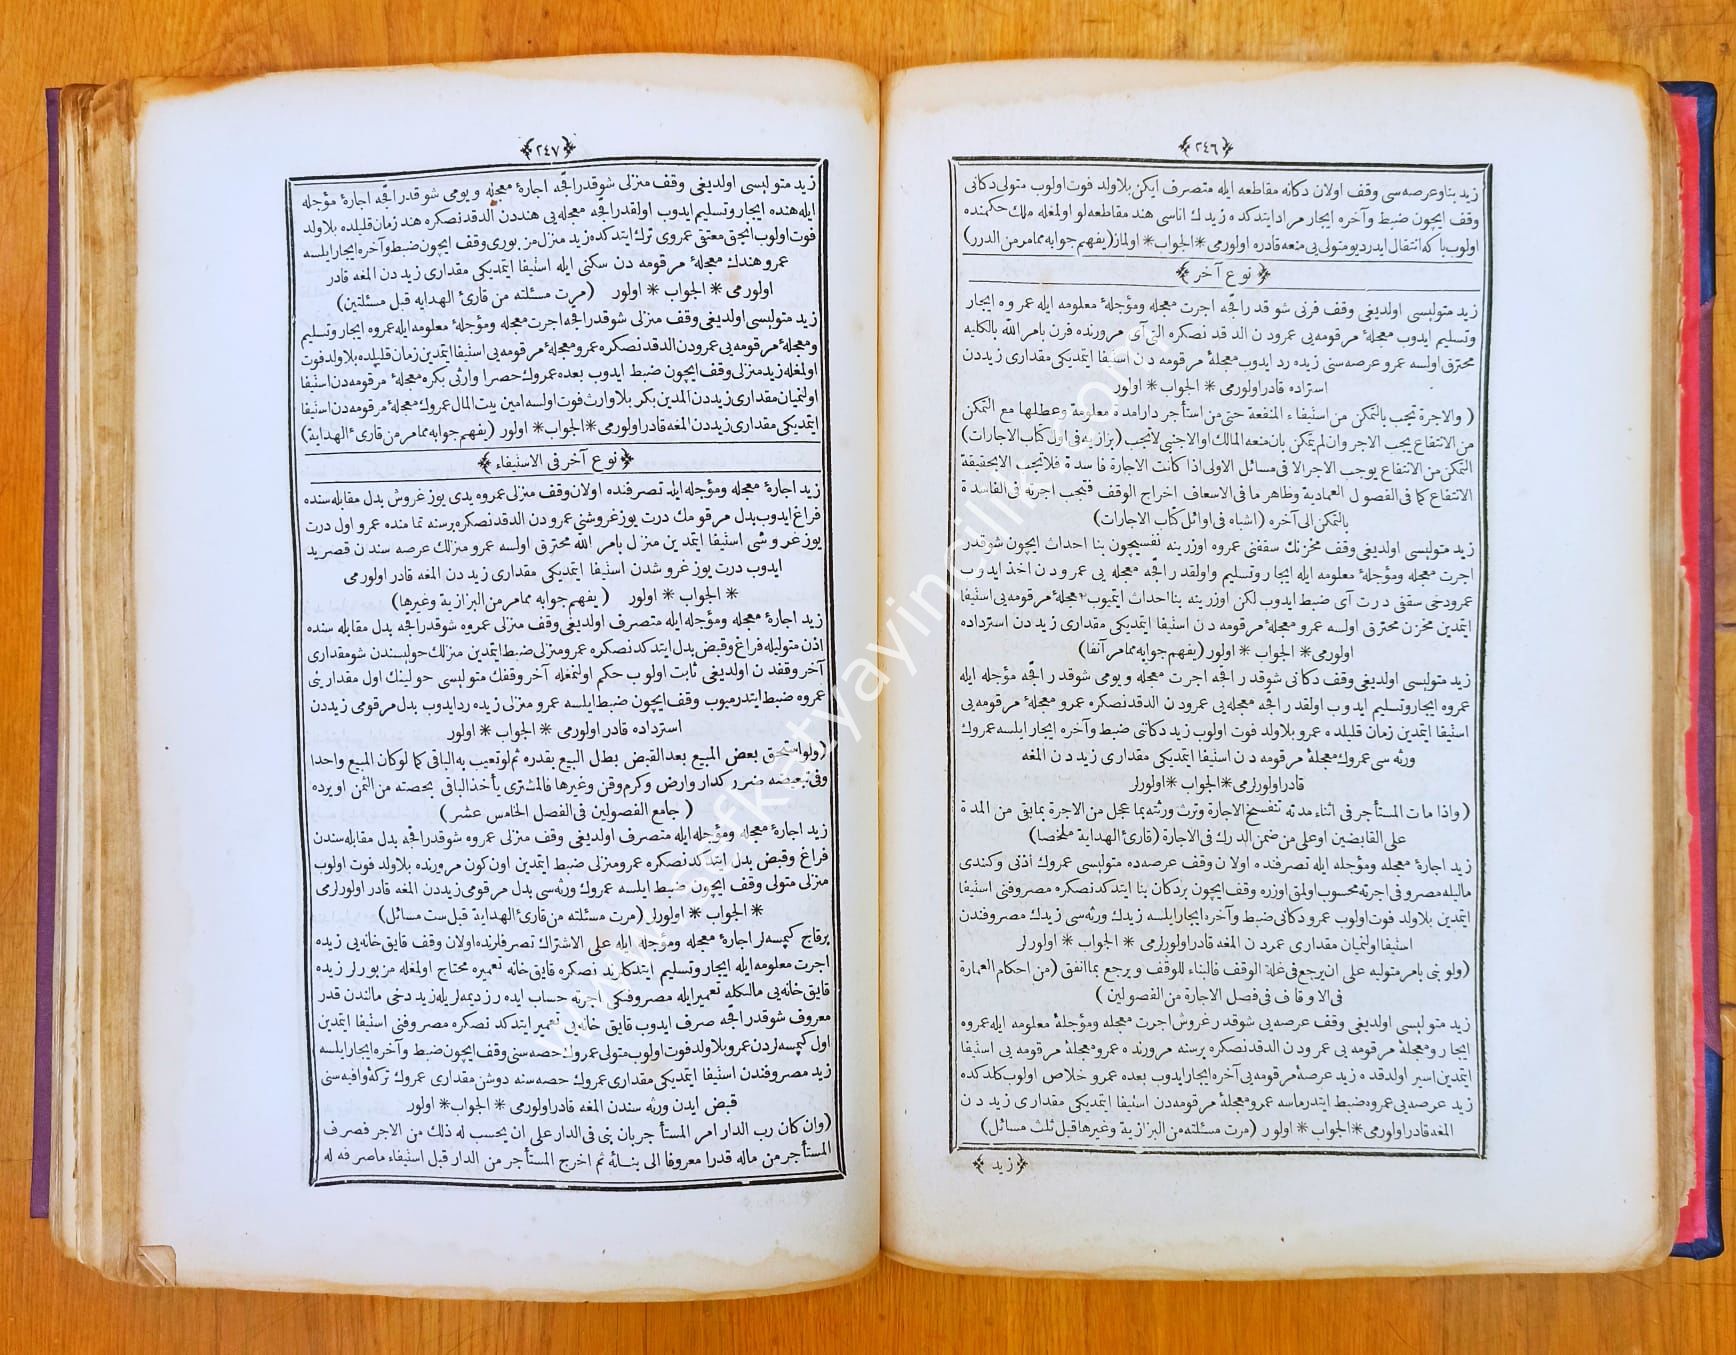 ﴿٢٤٦﴾
زيد بنا و عرصه‌سى وقف اولان دكانه مقاطعه ايله متصرف ايكن بلا ولد فوت اولوب متولى دكانى
وقف ايچون ضبط و آخره ايجار مراد ايتدكده زيدك اناسى هند مقاطعه‌لو اولمغله ملك حكمنده
اولوب بكا انتقال ايدر ديو متولى‌يى منعه قادره اولورمى * الجواب * اولماز (يفهم جوابه مما مر من الدرر)
﴿ نوع آخر ﴾
زيد متوليسى اولديغى وقف فرنى شو قدر اقچه اجرت معجله و مؤجلهٔ معلومه ايله عمروه ايجار
و تسليم ايدوب معجلهٔ مرقومه‌يى عمرودن الدقدنصكره التى آى مرورنده فرن بامر الله بالكليه
محترق اولسه عمرو عرصه‌سنى زيده رد ايدوب معجلهٔ مرقومه‌دن استيفا ايتمديكى مقدارى زيددن
استرداده قادر اولورمى * الجواب * اولور
(والاجرة تجب بالتمكن من استيفاء المنفعة حتى من استأجر دارا مدة معلومة وعطلها مع التمكن
من الانتفاع يجب الاجر وان لم يتمكن بان منعه المالك او الاجنبى لا تجب (بزازيه فى اول كتاب الاجارات)
التمكن من الانتفاع يوجب الاجر الا فى مسائل الاولى اذا كانت الاجارة فاسدة فلا تجب الا بحقيقة
الانتفاع كما فى الفصول العمادية وظاهر ما فى الاسعاف اخراج الوقف فتجب اجرته فى الفاسدة
بالتمكن الى آخره (اشباه فى اوائل كتاب الاجارات)
زيد متوليسى اولديغى وقف مخزنك سقفنى عمروه اوزرينه نفسيچون بنا احداث ايچون شو قدر
اجرت معجله و مؤجلهٔ معلومه ايله ايجار و تسليم و اولقدر اقچه معجله‌يى عمرودن اخذ ايدوب
عمرو دخى سقفى درت آى ضبط ايدوب لكن اوزرينه بنا احداث ايتميوب معجلهٔ مرقومه‌يى استيفا
ايتمدين مخزن محترق اولسه عمرو معجلهٔ مرقومه‌دن استيفا ايتمديكى مقدارى زيددن استرداده
اولورمى * الجواب * اولور (يفهم جوابه مما مر آنفا)
زيد متوليسى اولديغى وقف دكانى شوقدر اقچه اجرت معجله و يومى شوقدر اقچه مؤجله ايله
عمروه ايجار و تسليم ايدوب اولقدر اقچه معجله‌يى عمرودن الدقدنصكره عمرو معجلهٔ مرقومه‌يى
استيفا ايتمدين زمان قليلده عمرو بلا ولد فوت اولوب زيد دكانى ضبط و آخره ايجار ايلسه عمروك
ورثه‌سى عمروك معجلهٔ مرقومه‌دن استيفا ايتمديكى مقدارى زيددن المغه
قادر اولورلرمى * الجواب * اولورلر
(واذا مات المستأجر فى اثناء مدته تنفسخ الاجارة وترث ورثته بما عجل من الاجرة بما بقى من المدة
على القابضين او على من ضمن الدرك فى الاجارة (قارئ الهداية ملخصا)
زيد اجارهٔ معجله و مؤجله ايله تصرفنده اولان وقف عرصه‌ده متوليسى عمروك اذنى و كندى
ماليله مصروفى اجرته محسوب اولمق اوزره وقف ايچون بر دكان بنا ايتدكدنصكره مصروفنى استيفا
ايتمدين بلا ولد فوت اولوب عمرو دكانى ضبط و آخره ايجار ايلسه زيدك ورثه‌سى زيدك مصروفندن
استيفا اولنميان مقدارى عمرودن المغه قادر اولورلرمى * الجواب * اولورلر
(ولو بنى بامر متوليه على ان يرجع فى غلة الوقف فالبناء للوقف ويرجع بما انفق (من احكام العمارة
فى الاوقاف فى فصل الاجارة من الفصولين)
زيد متوليسى اولديغى وقف عرصه‌يى شوقدر غروش اجرت معجله و مؤجلهٔ معلومه ايله عمروه
ايجار و معجلهٔ مرقومه‌يى عمرودن الدقدنصكره برسنه مرورنده عمرو معجلهٔ مرقومه‌يى استيفا
ايتمدين اسير اولدقده زيد عرصهٔ مرقومه‌يى آخره ايجار ايدوب بعده عمرو خلاص اولوب كلدكده
زيد عرصه‌يى عمروه ضبط ايتدرماسه عمرو معجلهٔ مرقومه‌دن استيفا ايتمديكى مقدارى زيددن
المغه قادر اولورمى * الجواب * اولور (مرت مسئلته من البزازية وغيرها قبل ثلث مسائل)
﴿ زيد ﴾
﴿٢٤٧﴾
زيد متوليسى اولديغى وقف منزلى شوقدر اقچه اجارهٔ معجله و يومى شو قدر اقچه اجارهٔ مؤجله
ايله هنده ايجار و تسليم ايدوب اولقدر اقچه معجله‌يى هنددن الدقدنصكره هند زمان قليلده بلا ولد
فوت اولوب انجق معتقى عمروى ترك ايتدكده زيد منزل مزبورى وقف ايچون ضبط و آخره ايجار ايلسه
عمرو هندك معجلهٔ مرقومه‌دن سكنى ايله استيفا ايتمديكى مقدارى زيددن المغه قادر
اولورمى * الجواب * اولور (مرت مسئلته من قارئ الهدايه قبل مسئلتين)
زيد متوليسى اولديغى وقف منزلى شوقدر اقچه اجرت معجله و مؤجلهٔ معلومه ايله عمروه ايجار و تسليم
و معجلهٔ مرقومه‌يى عمرودن الدقدنصكره عمرو معجلهٔ مرقومه‌يى استيفا ايتمدين زمان قليلده بلا ولد فوت
اولمغله زيد منزلى وقف ايچون ضبط ايدوب بعده عمروك حصرا وارثى بكره معجلهٔ مرقومه‌دن استيفا
اولنميان مقدارى زيددن المدين بكر بلا وارث فوت اولسه امين بيت المال عمروك معجلهٔ مرقومه‌دن استيفا
ايتمديكى مقدارى زيددن المغه قادر اولورمى * الجواب * اولور (يفهم جوابه مما مر من قارئ الهداية)
﴿ نوع آخر فى الاستيفاء ﴾
زيد اجارهٔ معجله و مؤجله ايله تصرفنده اولان وقف منزلى عمروه يدى يوز غروش بدل مقابله‌سنده
فراغ ايدوب بدل مرقومك درت يوز غروشنى عمرودن الدقدنصكره برسنه تمامنده عمرو اول درت
يوز غروشى استيفا ايتمدين منزل بامر الله محترق اولسه عمرو منزلك عرصه‌سندن قصريد
ايدوب درت يوز غروشدن استيفا ايتمديكى مقدارى زيددن المغه قادر اولورمى
* الجواب * اولور (يفهم جوابه مما مر من البزازية وغيرها)
زيد اجارهٔ معجله و مؤجله ايله متصرف اولديغى وقف منزلى عمروه شوقدر اقچه بدل مقابله‌سنده
اذن متوليله فراغ و قبض بدل ايتدكدنصكره عمرو منزلى ضبط ايتمدين منزلك حوليسندن شو مقدارى
آخر وقفدن اولديغى ثابت اولوب حكم اولنمغله آخر وقفك متوليسى حولينك اول مقدارينى
عمروه ضبط ايتدرميوب وقف ايچون ضبط ايلسه عمرو منزلى زيده رد ايدوب بدل مرقومى زيددن
استرداده قادر اولورمى * الجواب * اولور
(ولو استحق بعض المبيع بعد القبض بطل البيع بقدره ثم لو تعيب به الباقى كما لو كان المبيع واحدا
وفى تبعيضه ضرر كدار وارض وكرم وقن وغيرها فالمشترى يأخذ الباقى بحصته من الثمن او يرده
(جامع الفصولين فى الفصل الخامس عشر)
زيد اجارهٔ معجله و مؤجله ايله متصرف اولديغى وقف منزلى عمروه شوقدر اقچه بدل مقابله‌سندن
فراغ و قبض بدل ايتدكدنصكره عمرو منزلى ضبط ايتمدين اون كون مرورنده بلا ولد فوت اولوب
منزلى متولى وقف ايچون ضبط ايلسه عمروك ورثه‌سى بدل مرقومى زيددن المغه قادر اولورلرمى
* الجواب * اولورلر (مرت مسئلته من قارئ الهداية قبل ست مسائل)
برقاج كيمسه‌لر اجارهٔ معجله و مؤجله ايله على الاشتراك تصرفلرنده اولان وقف قايق‌خانه‌يى زيده
اجرت معلومه ايله ايجار و تسليم ايتدكلرندنصكره قايق‌خانه تعميره محتاج اولمغله مزبورلر زيده
قايق‌خانه‌يى مالكله تعمير ايله مصروفكى اجرته حساب ايده‌رز ديمه‌لريله زيد دخى مالندن قدر
معروف شوقدر اقچه صرف ايدوب قايق خانه‌يى تعمير ايتدكدنصكره مصروفنى استيفا ايتمدين
اول كيمسه‌لردن عمرو بلا ولد فوت اولوب متولى عمروك حصه‌سنى وقف ايچون ضبط و آخره ايجار ايلسه
زيد مصروفندن استيفا ايتمديكى مقدارى عمروك حصه‌سنه دوشن مقدارى عمروك تركهٔ وافيه‌سنى
قبض ايدن ورثه‌سندن المغه قادر اولورمى * الجواب * اولور
(وان كان رب الدار امر المستأجر بان يبنى فى الدار على ان يحسب له ذلك من الاجر فصرف
المستأجر من ماله قدرا معروفا الى بنائه ثم اخرج المستأجر من الدار قبل استيفاء ما صرفه له
www.sefkatyayincilik.com